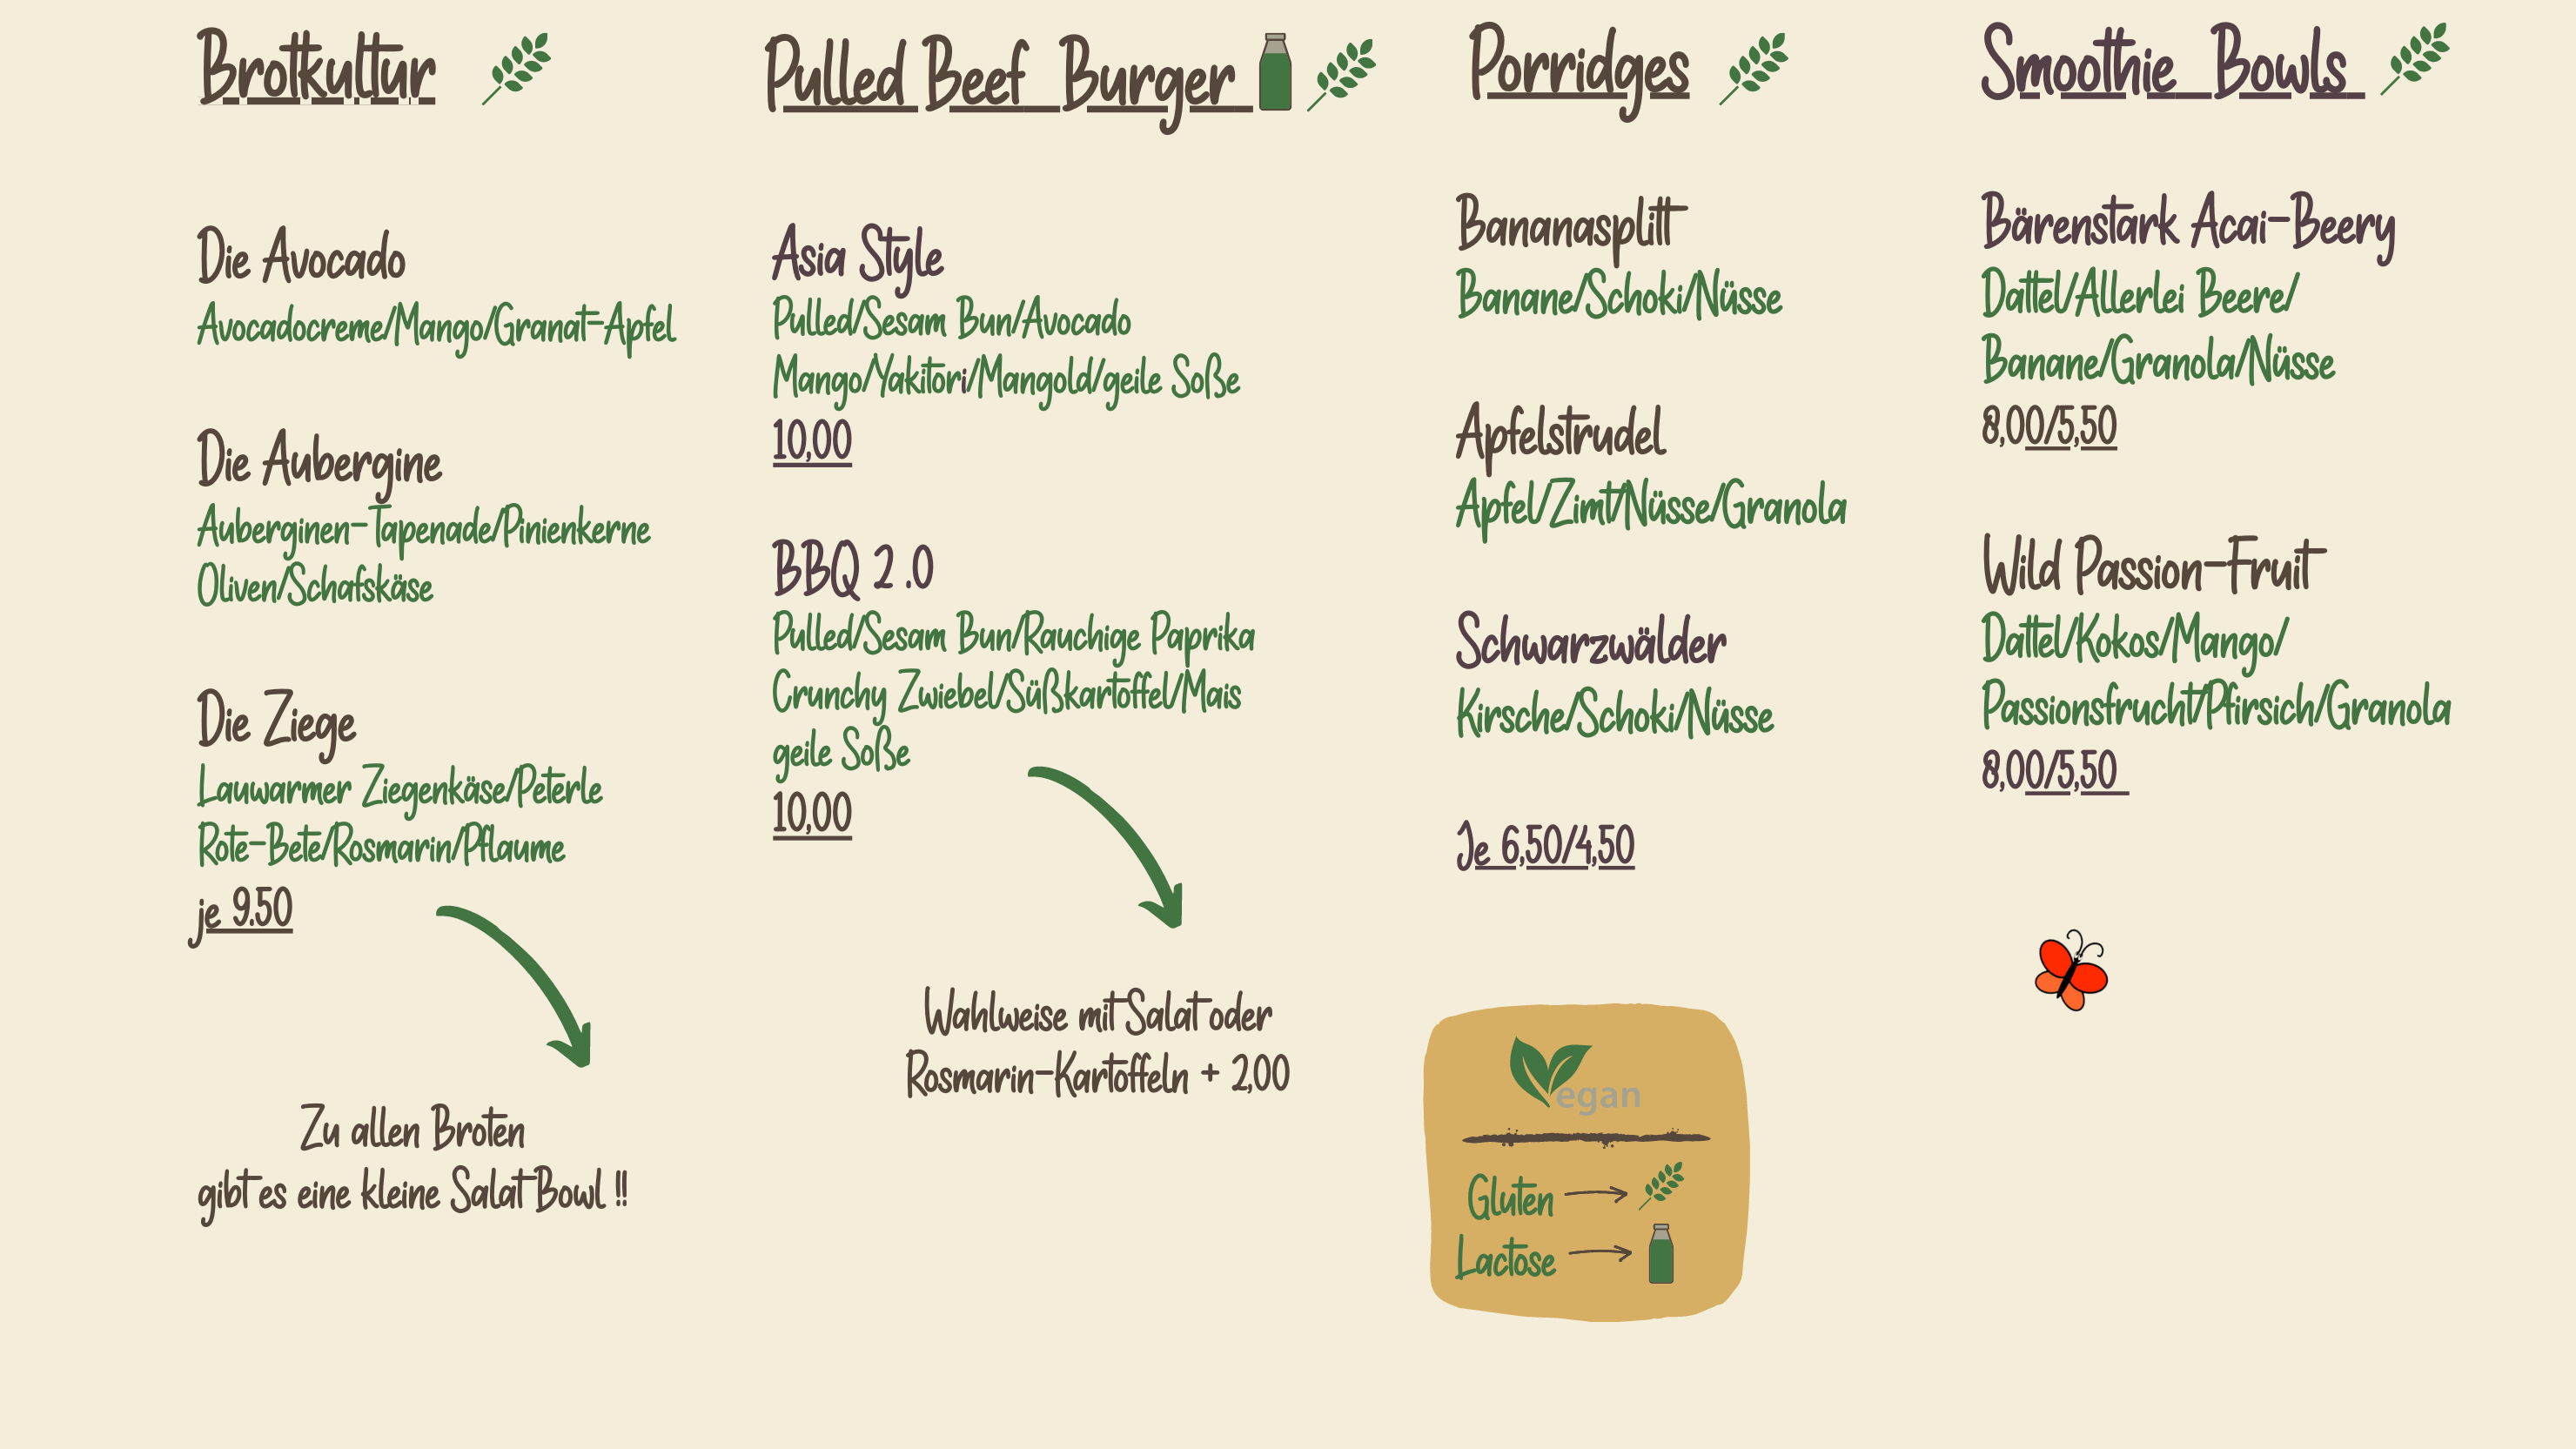 Brotkultur
Die Avocado
Avocadocreme/Mango/Granat-Apfel
Die Aubergine
Auberginen-Tapenade/Pinienkerne
Oliven/Schafskäse
Die Ziege
Lauwarmer Ziegenkäse/Peterle
Rote-Bete/Rosmarin/Pflaume
je 9.50
Zu allen Broten
gibt es eine kleine Salat Bowl !!
Pulled Beef Burger
Asia Style
Pulled/Sesam Bun/Avocado
Mango/Yakitori/Mangold/geile Soße
10,00
BBQ 2 .0
Pulled/Sesam Bun/Rauchige Paprika
Crunchy Zwiebel/Süßkartoffel/Mais
geile Soße
10,00
Wahlweise mit Salat oder
Rosmarin-Kartoffeln + 2,00
Porridges
Bananasplitt
Banane/Schoki/Nüsse
Apfelstrudel
Apfel/Zimt/Nüsse/Granola
Schwarzwälder
Kirsche/Schoki/Nüsse
Je 6,50/4,50
Vegan
Gluten
Lactose
Smoothie Bowls
Bärenstark Acai-Beery
Dattel/Allerlei Beere/
Banane/Granola/Nüsse
8,00/5,50
Wild Passion-Fruit
Dattel/Kokos/Mango/
Passionsfrucht/Pfirsich/Granola
8,00/5,50